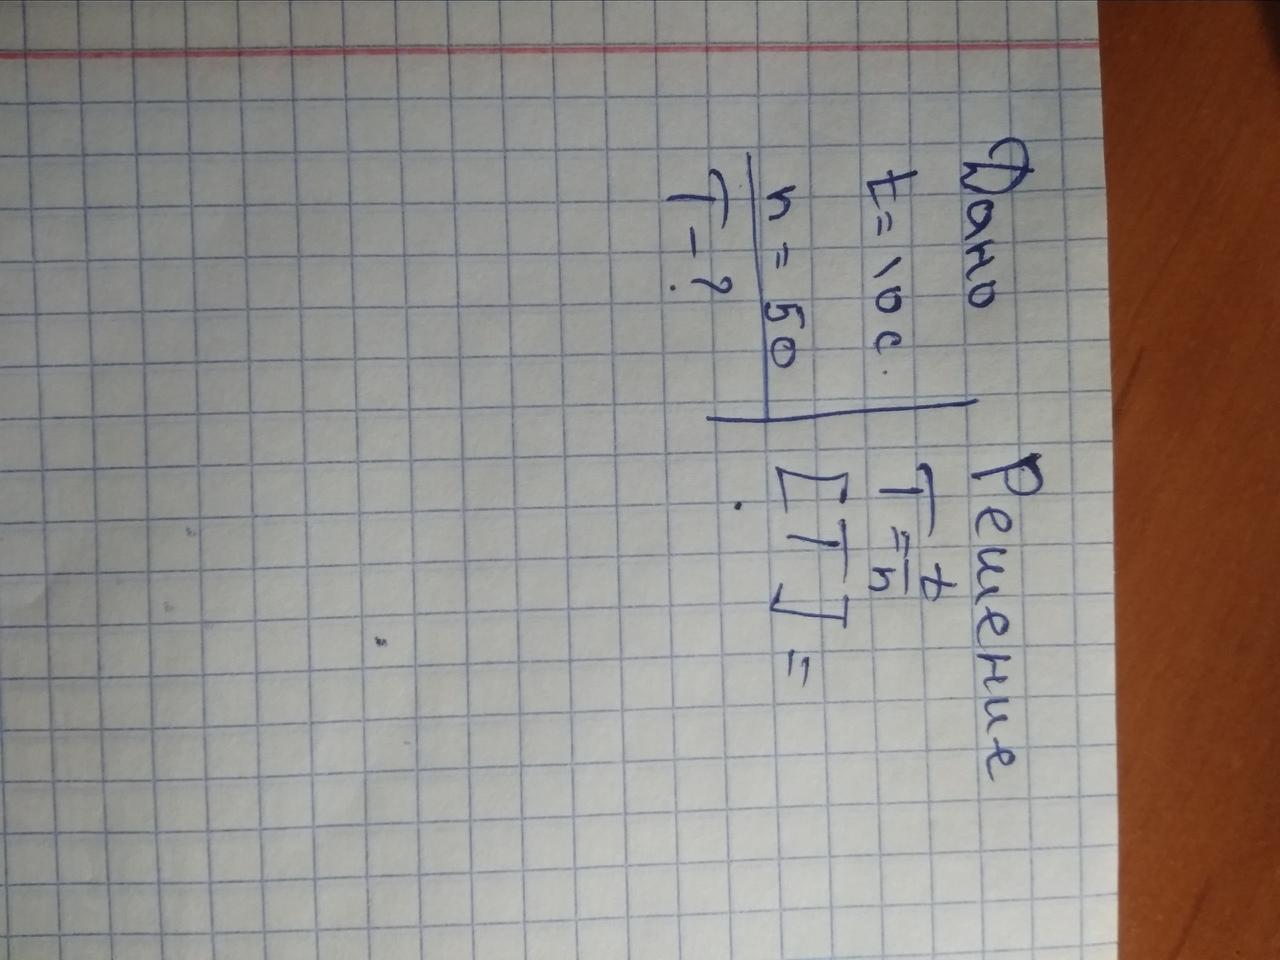 Дано
t = 10 с.
n = 50
T - ?
Решение
T = t/n
[T] =